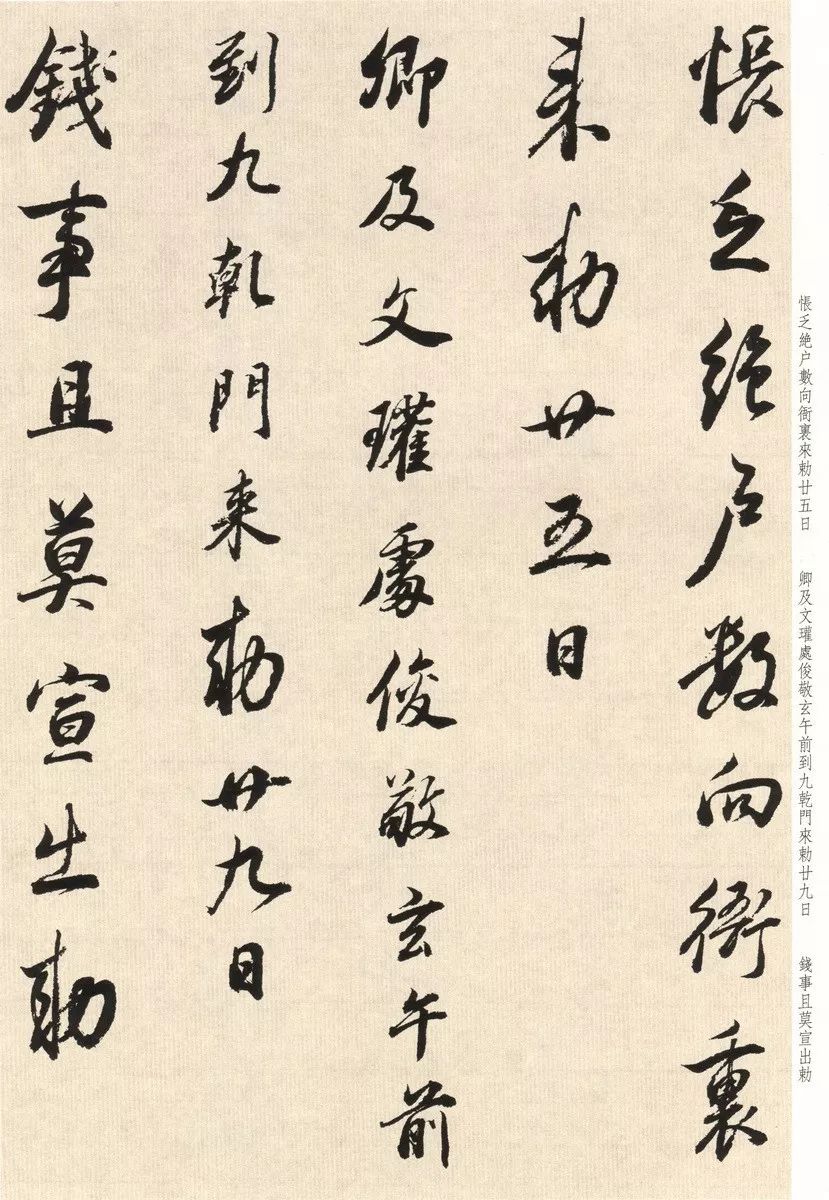 悵乏絶户數向衙裏
來勅廿五日
卿及文瓘處俊敬玄午前
到九乾門來勅廿九日
錢事且莫宣出勅
悵乏絶户數向衙裏來勅廿五日　卿及文瓘處俊敬玄午前到九乾門來勅廿九日　錢事且莫宣出勅